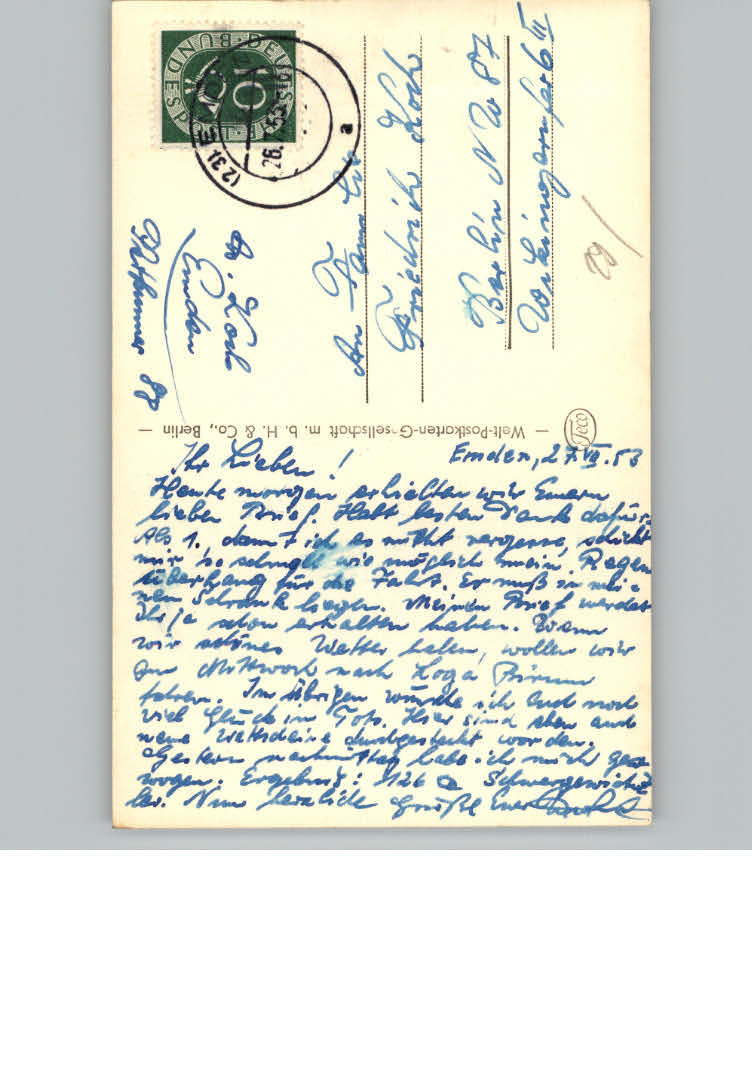 DEUTSCHE BUNDESPOST
10
(23) EMDEN
26.7.53
a
B. Koch
Emden
88
An Familie
Friedrich Koch
Berlin NW 87
Wikingerufer 6 III
— Welt-Postkarten-Gesellschaft m. b. H. & Co., Berlin —
Teco
Emden, 27.VII.53
Ihr Lieben!
Heute morgen erhielten wir Euern
lieben Brief. Habt besten Dank dafür.
Als 1. damit ich es nicht vergesse, schickt
mir so schnell wie möglich mein Regen
überhang für die Fahrt. Er muß in mei-
nen Schrank liegen. Meinen Brief werdet
Ihr ja schon erhalten haben. Wenn
wir schönes Wetter haben, wollen wir
am Mittwoch nach Loga Birum
fahren. Im übrigen wünsche ich Euch noch
viel Glück im Toto. Hier sind eben auch
neue Wettscheine durchgesteckt worden.
Gestern nachmittag habe ich mich gew
wogen. Ergebnis: 126 Schwergewicht
ler. Nun herzliche Grüße Euer